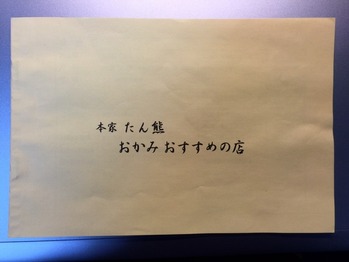 本家 たん熊
おかみ おすすめの店